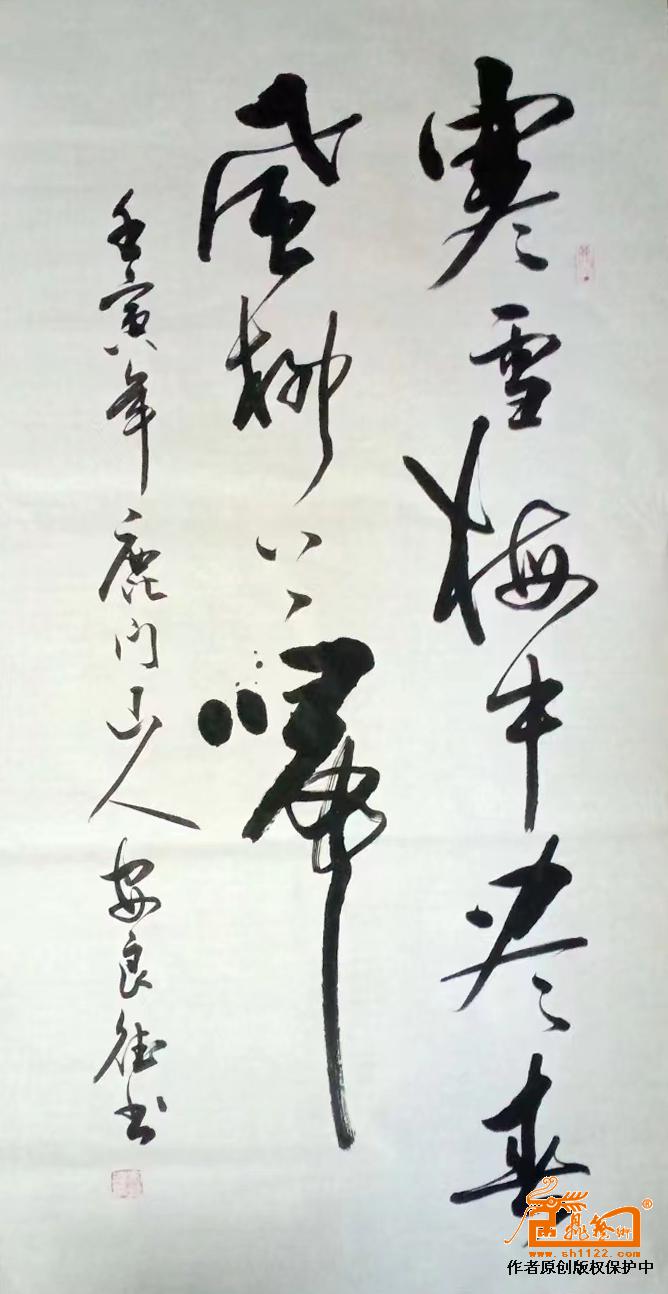 寒雪梅中尽春
風柳上歸
壬寅年鹿门山人安良德书
www.sh1122.com
作者原创版权保护中